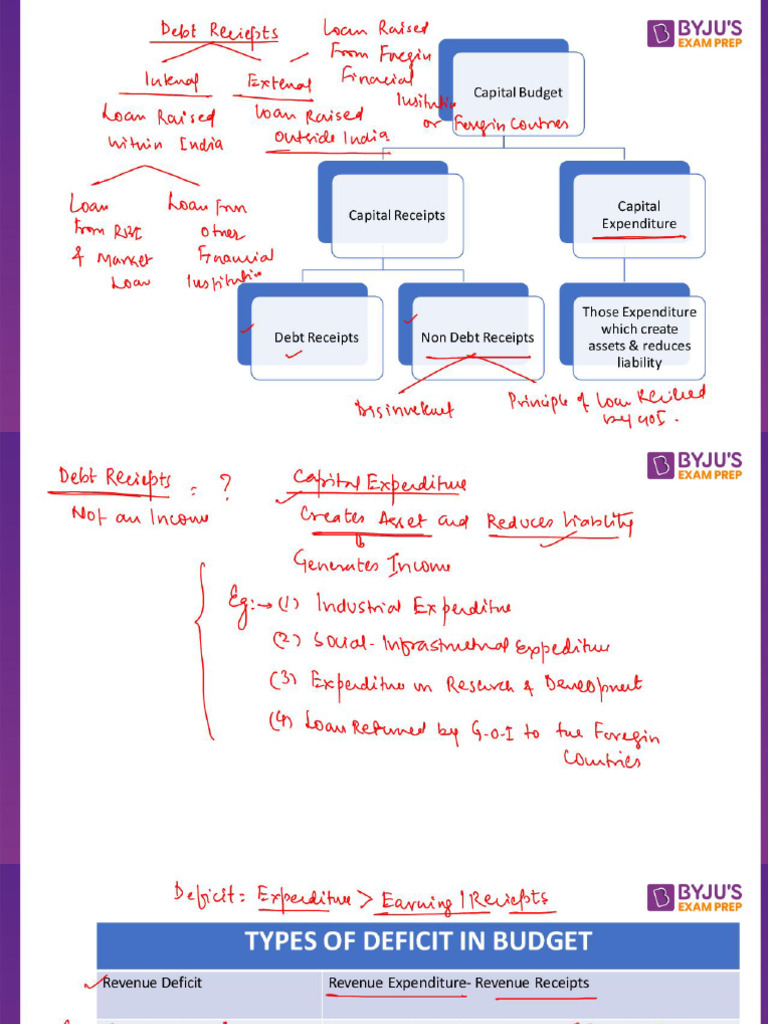 Debt Reciepts
Internal
External
Loan Raised
within India
Loan Raised
outside India
Loan Raised
From Foregin
Financial
Institution
or Foregin Coutries
Loan
From RBI
& Market
Loan
Loan From
other
Financial
Institution
BYJU'S
EXAM PREP
Capital Budget
Capital Receipts
Capital
Expenditure
Debt Receipts
Non Debt Receipts
Those Expenditure
which create
assets & reduces
liability
Disinvestment
Principle of Loan Recieved
by GOI.
BYJU'S
EXAM PREP
Debt Reciepts = ?
Not an Income
Capital Expenditure
Creates Asset and Reduces Liablity
Generates Income
Eg:→ (1) Industrial Expenditure
(2) Social-Infrastructural Expediture
(3) Expenditure on Research & Development
(4) Loan Returned by G.O.I to the Foregin
Coutries
BYJU'S
EXAM PREP
Deficit = Expenditure > Earning / Reciepts
TYPES OF DEFICIT IN BUDGET
Revenue Deficit
Revenue Expenditure- Revenue Receipts